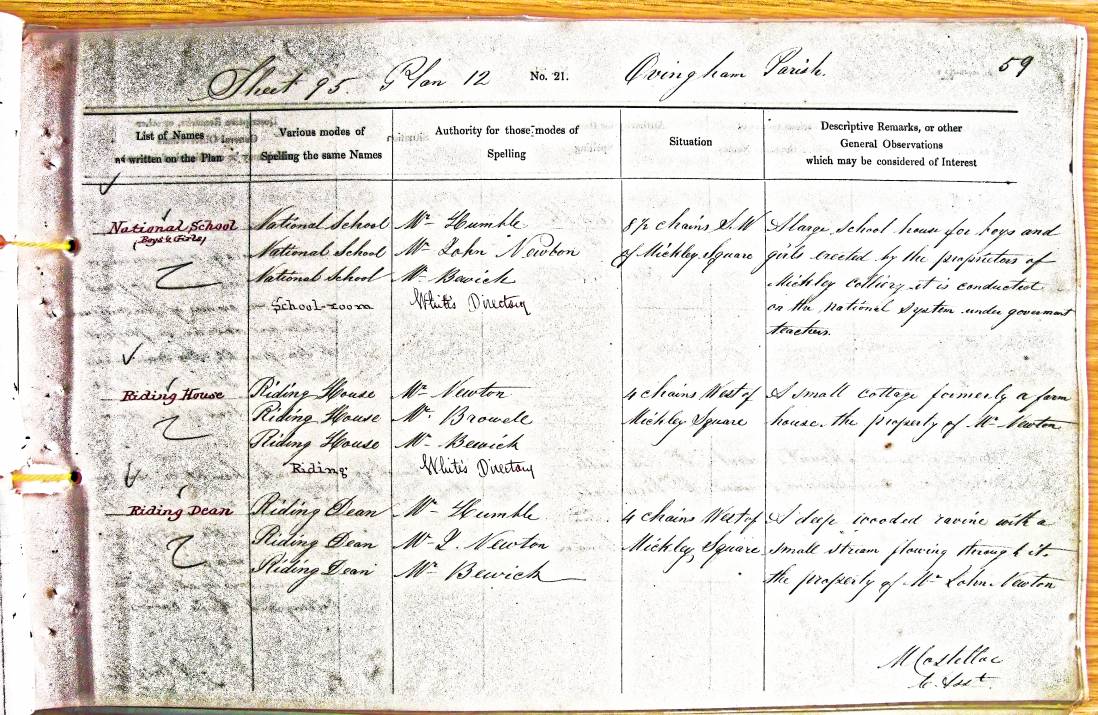 Sheet 95. Plan 12 No. 21. Ovingham Parish. 59
List of Names as written on the Plan
Various modes of Spelling the same Names
Authority for those modes of Spelling
Situation
Descriptive Remarks, or other General Observations which may be considered of Interest
National School (Boys & Girls)
National School Mr. Humble 8½ chains S.W
National School Mr. John Newton of Mickley Square
National School Mr. Bewick
School-room White's Directory
A large school house for boys and
girls erected by the proprietors of
Mickley Colliery it is conducted
on the National System under goverment
teachers.
Riding House
Riding House Mr. Newton 4 chains West of
Riding House Mr. Browell Mickley Square
Riding House Mr. Bewick
Riding White's Directory
A small cottage formerly a farm
house. the property of Mr. Newton
Riding Dean
Riding Dean Mr. Humble 4 chains West of
Riding Dean Mr. J. Newton Mickley Square
Riding Dean Mr. Bewick
A deep wooded ravine with a
small stream flowing through it.
the property of Mr. John Newton
C. Asst.